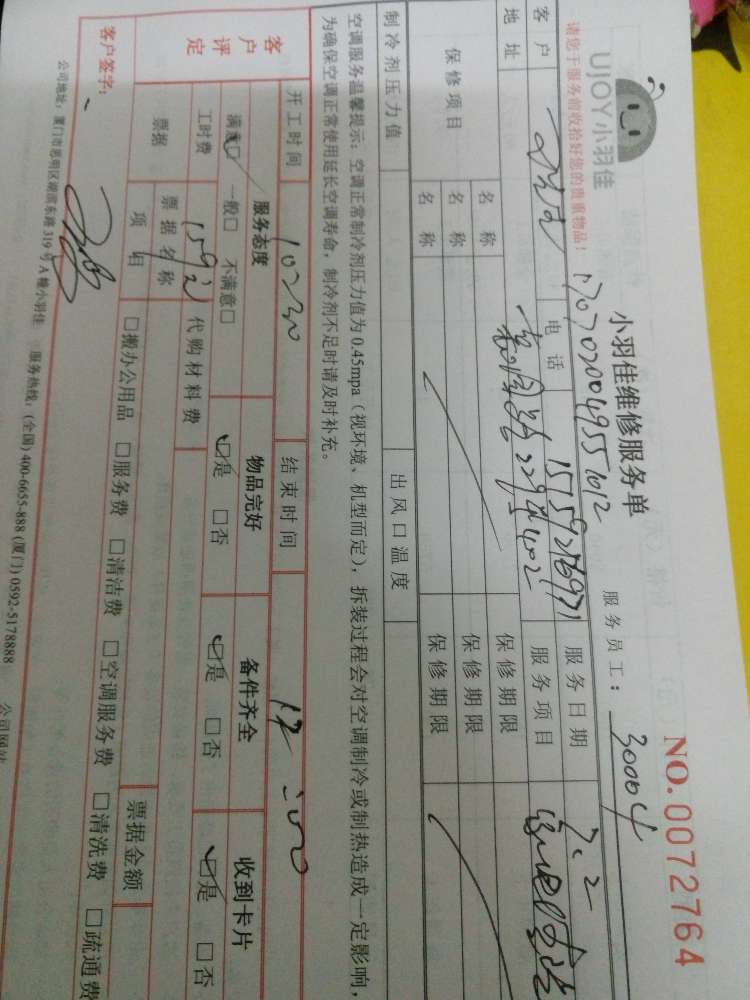 UJOY小羽佳
小羽佳维修服务单
NO. 0072764
请您于服务前收拾好您的贵重物品！
1707020049551012
服务员工： 30004
客户 电话 15159276971 服务日期 7.2
地址 229号402 服务项目
保修项目 名称 保修期限
名称 保修期限
名称 保修期限
制冷剂压力值 出风口温度
空调服务温馨提示：空调正常制冷剂压力值为 0.45mpa（视环境、机型而定），拆装过程会对空调制冷或制热造成一定影响，
为确保空调正常使用延长空调寿命，制冷剂不足时请及时补充。
开工时间 10:30 结束时间 12:00
客户评定 服务态度 物品完好 备件齐全 收到卡片
满意□ 一般□ 不满意□ □是 □否 □是 □否 □是 □否
工时费 159元 代购材料费
票据 票据名称 票据金额
项目 □搬办公用品 □服务费 □清洁费 □空调服务费 □清洗费 □疏通费
客户签字：
公司地址：厦门市思明区湖滨东路 319 号 A 幢小羽佳 服务热线：(全国) 400-6655-888 (厦门) 0592-5178888 公司网站